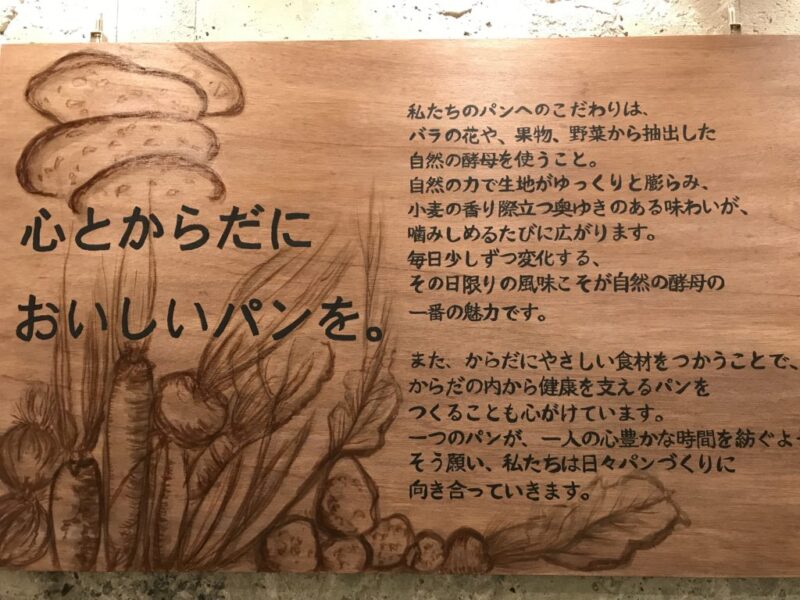 心とからだに
おいしいパンを。
私たちのパンへのこだわりは、
バラの花や、果物、野菜から抽出した
自然の酵母を使うこと。
自然の力で生地がゆっくりと膨らみ、
小麦の香り際立つ奥ゆきのある味わいが、
噛みしめるたびに広がります。
毎日少しずつ変化する、
その日限りの風味こそが自然の酵母の
一番の魅力です。
また、からだにやさしい食材をつかうことで、
からだの内から健康を支えるパンを
つくることも心がけています。
一つのパンが、一人の心豊かな時間を紡ぐよ
そう願い、私たちは日々パンづくりに
向き合っていきます。